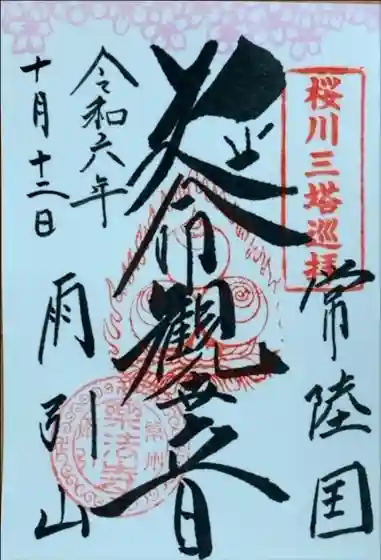 桜川三塔巡拝
常陸国
延命觀世音
雨引山
令和六年
十月十二日
常州
樂法寺